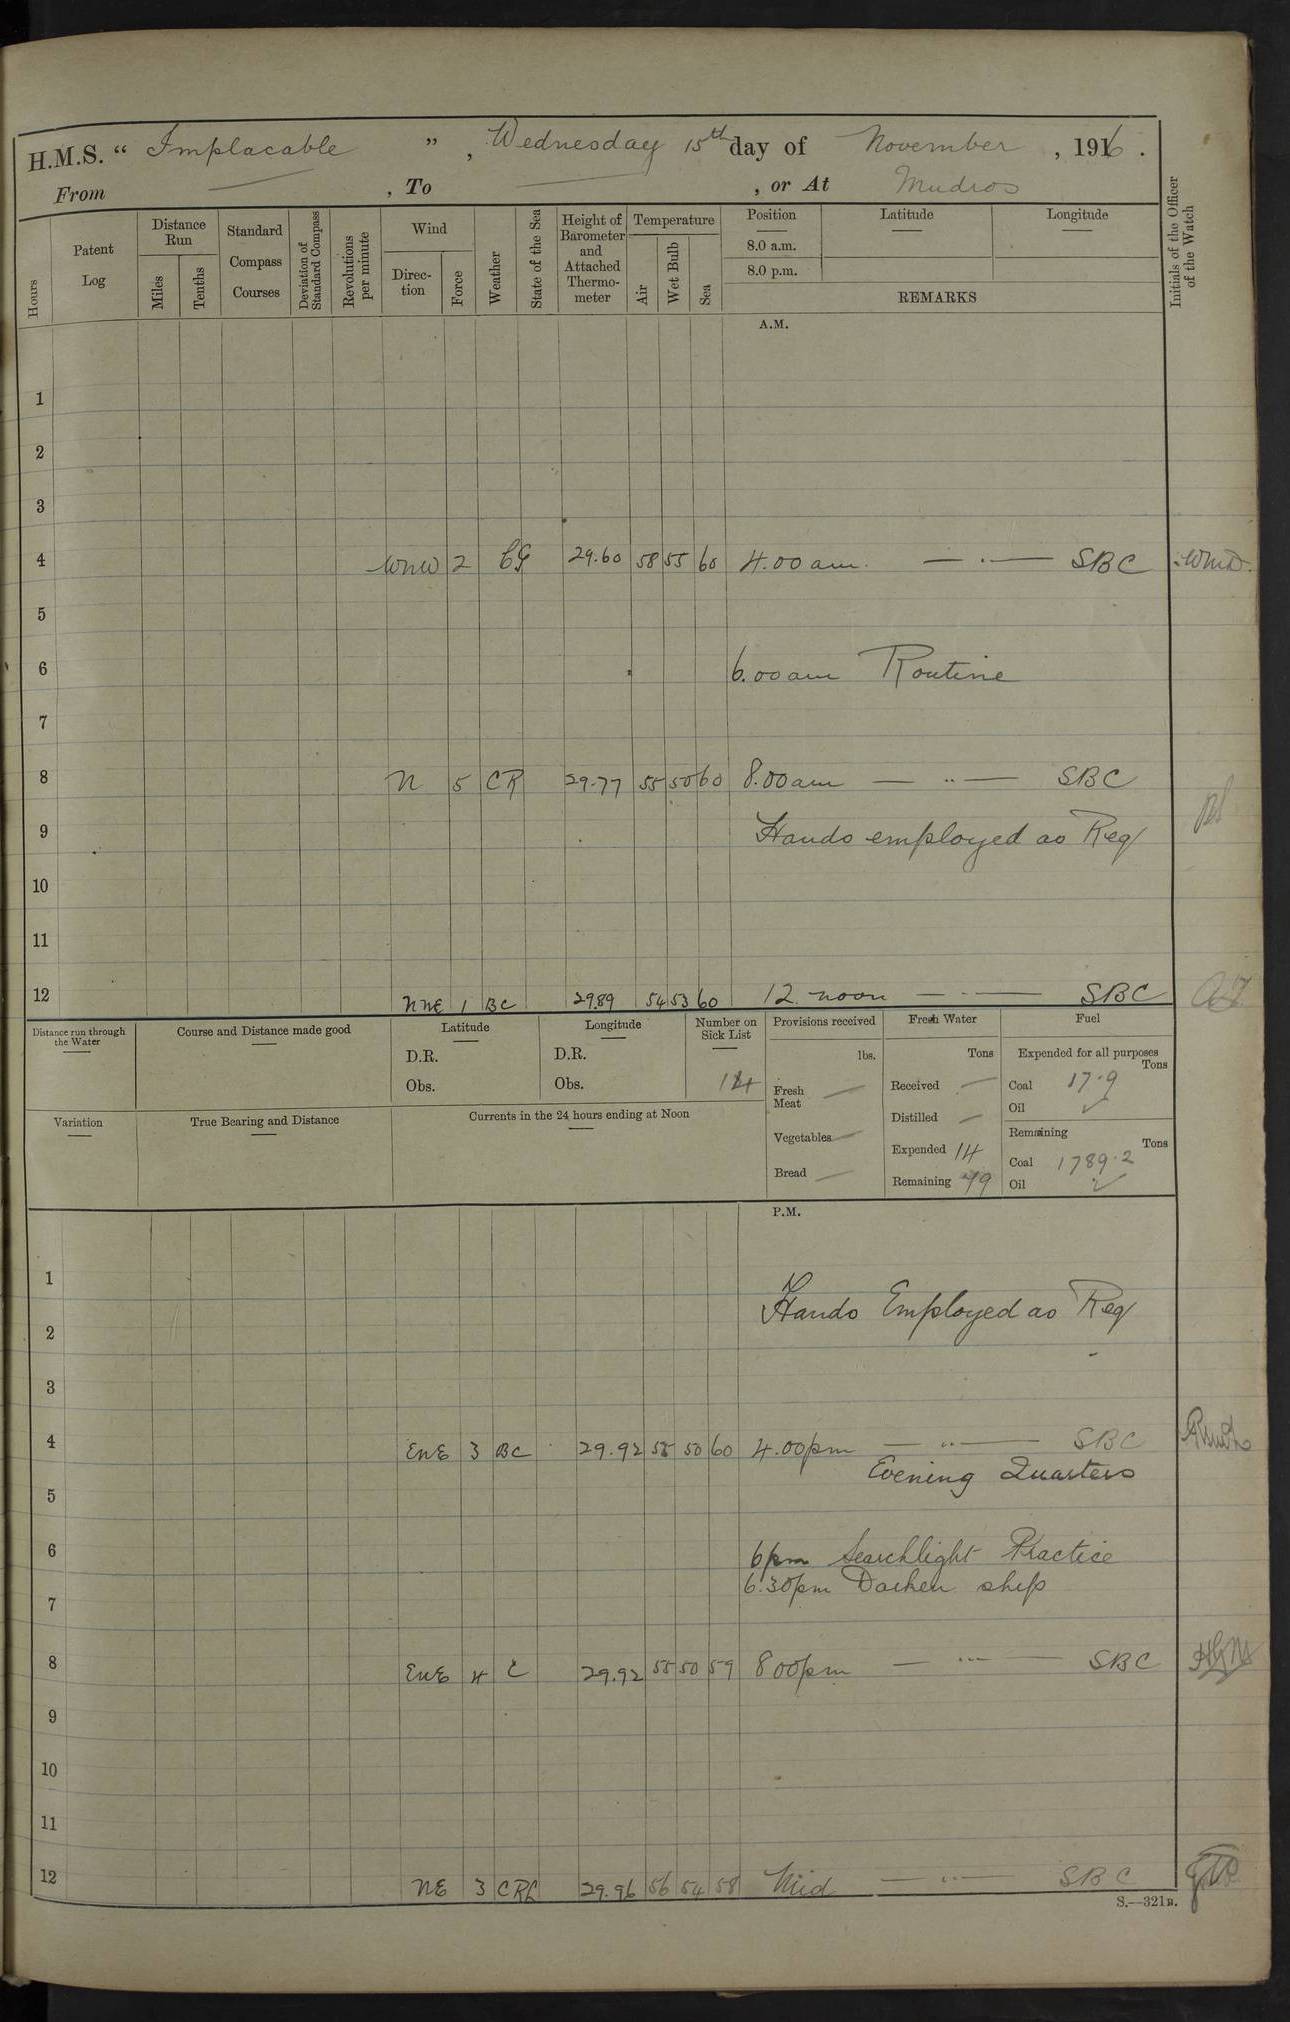 H.M.S. “ Implacable ” , Wednesday 15th day of November , 1916 .
From — , To — , or At Mudros
Hours
Patent Log
Distance Run
Miles
Tenths
Standard Compass Courses
Deviation of Standard Compass
Revolutions per minute
Wind
Direction
Force
Weather
State of the Sea
Height of Barometer and Attached Thermometer
Temperature
Air
Wet Bulb
Sea
Position
8.0 a.m.
8.0 p.m.
Latitude
Longitude
REMARKS
Initials of the Officer of the Watch
A.M.
1
2
3
4 WNW 2 29.60 58 55 60 4.00 am. — . — SBC
5
6 6.00 am Routine
7
8 N 5 CR 29.77 55 50 60 8.00 am — .. — SBC
9 Hands employed as Req
10
11
12 NNE 1 BC 29.89 54 53 60 12 noon — . — SBC
Distance run through the Water
Course and Distance made good
Latitude
D.R.
Obs.
Longitude
D.R.
Obs.
Number on Sick List
14
Provisions received
lbs.
Fresh Meat —
Vegetables —
Bread —
Fresh Water
Tons
Received —
Distilled —
Expended 14
Remaining 49
Fuel
Expended for all purposes
Tons
Coal 17.9
Oil ✓
Remaining
Tons
Coal 1789.2
Oil ✓
Variation
True Bearing and Distance
Currents in the 24 hours ending at Noon
P.M.
1
Hands Employed as Req
2
3
4 ENE 3 BC 29.92 55 50 60 4.00pm — .. — SBC
Evening Quarters
5
6 6pm Searchlight Practice
6.30pm Darken ship
7
8 ENE 4 C 29.92 55 50 59 8 00pm — ... — SBC
9
10
11
12 NE 3 CRL 29.96 56 54 58 Mid — .. — SBC
S.—321B.